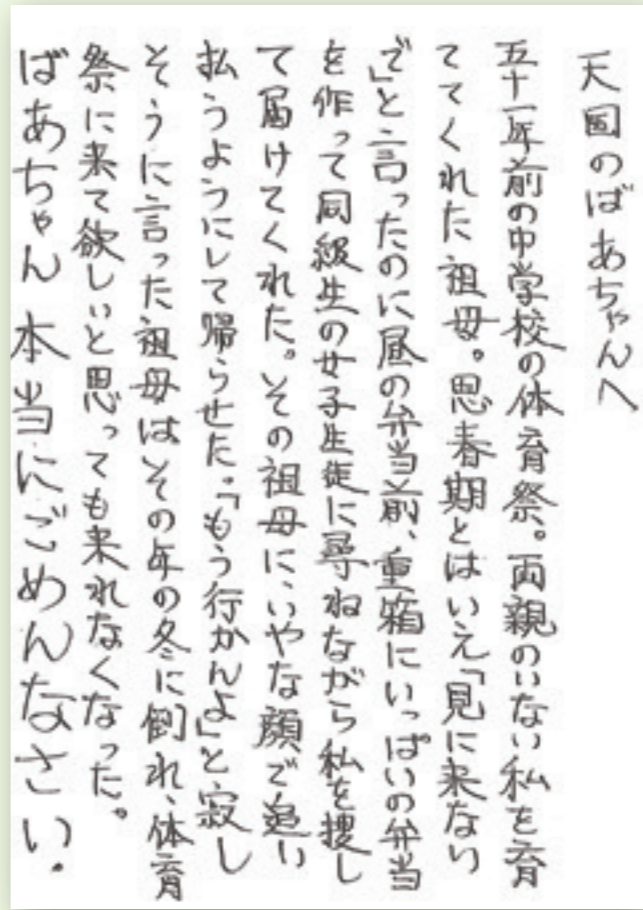 天国のばあちゃんへ
五十一年前の中学校の体育祭。両親のいない私を育
ててくれた祖母。思春期とはいえ「見に来ない
で」と言ったのに昼の弁当前、重箱にいっぱいの弁当
を作って同級生の女子生徒に尋ねながら私を捜し
て届けてくれた。その祖母に、いやな顔で追い
払うようにして帰らせた。「もう行かんよ」と寂し
そうに言った祖母はその年の冬に倒れ、体育
祭に来て欲しいと思っても来れなくなった。
ばあちゃん 本当にごめんなさい。